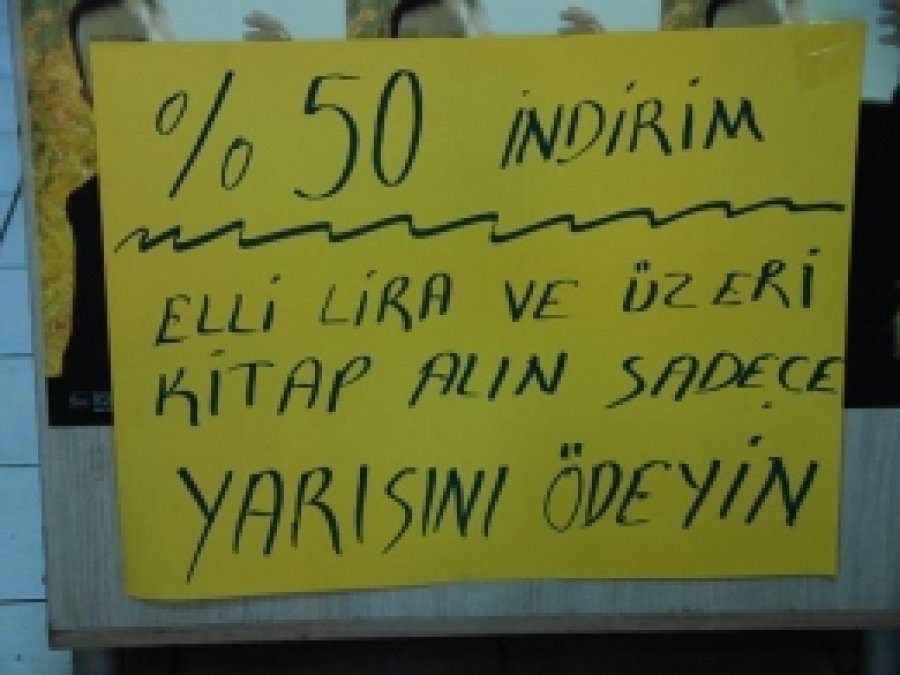 % 50 İNDİRİM
ELLİ LİRA VE ÜZERİ
KİTAP ALIN SADEÇE
YARISINI ÖDEYİN